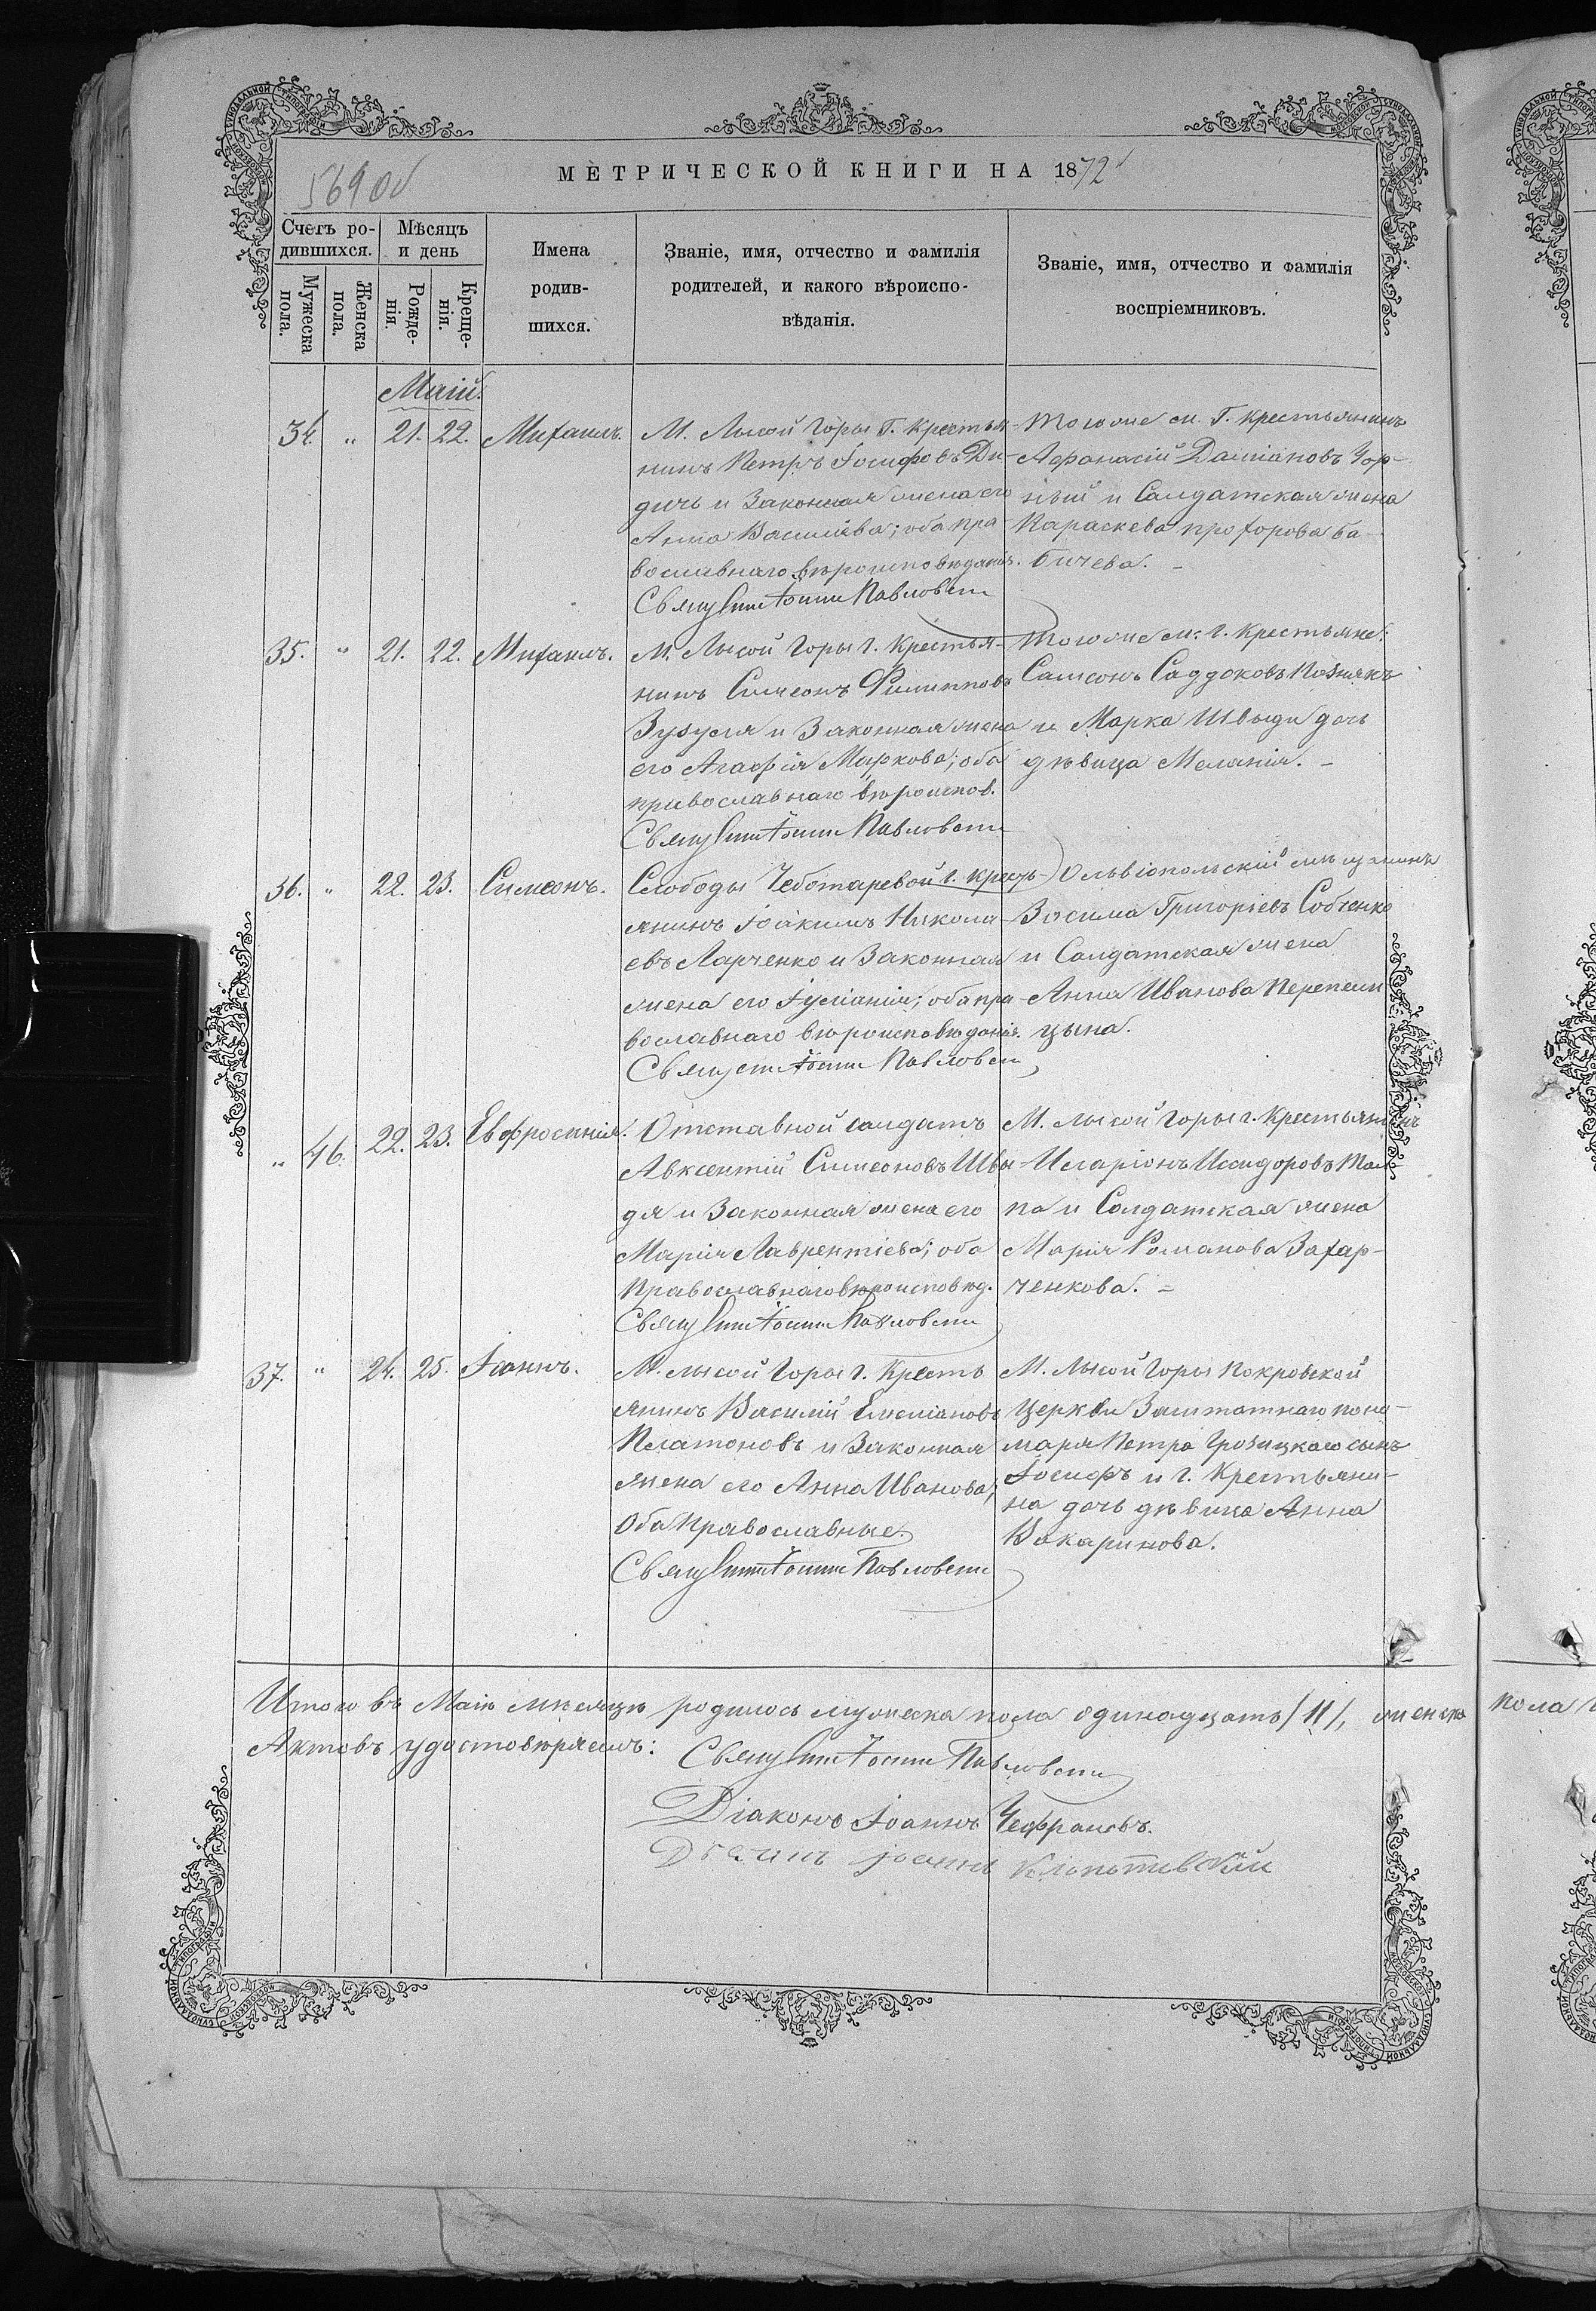 569 об
МЕТРИЧЕСКОЙ КНИГИ НА 1872
Счетъ ро-
дившихся.
Мѣсяцъ
и день
Мужеска
пола.
Женска
пола.
Рожде-
нія.
Креще-
нія.
Имена
родив-
шихся.
Званіе, имя, отчество и фамилія
родителей, и какого вѣроиспо-
вѣданія.
Званіе, имя, отчество и фамилія
воспріемниковъ.
Маій.
34. " 21. 22. Михаилъ.
М. Лысой Горы Г. Крестья-
нинъ Петръ Іосифовъ Ди-
дичъ и Законная жена его
Анна Василіева; оба пра-
вославнаго вѣроисповѣданія.
Священникъ Павловскі
Того же м. Г. Крестьянинъ
Афанасій Даміановъ Чор-
ный и Салдатская жена
Параскева прохорова ба-
бичева. -
35. " 21. 22. Михаилъ.
М. Лысой Горы Г. Крестья-
нинъ Симеонъ Филипповъ
Зузуля и Законная жена
его Агафія Маркова; оба
православнаго вѣроиспов.
Того же м. Г. Крестьяне:
Самсонъ Саддоковъ Познякъ
и Марка Швыди дочь
дѣвица Меланія. -
36. " 22. 23. Симеонъ.
Слободы Чеботаревой Г. Кресть-
янинъ Іоакимъ Никола-
евъ Ларченко и Законная
жена его Іуліанія; оба пра-
вославнаго вѣроисповѣданія.
Ольвіопольскій мѣщанинъ
Зосима Григоріевъ Собченко
и Салдатская жена
Анна Иванова Перепели
цына.
" 46. 22. 23. Евфросинія.
Отставной салдатъ
Авксентій Симеоновъ Швы-
дя и Законная жена его
Марія Лаврентіева; оба
Православнаго вѣроисповѣд.
М. Лысой Горы Г. Крестьянинъ
Иларіонъ Исидоровъ
па и Солдатская жена
Марія Романова Захар-
ченкова. =
37. " 24. 25. Іоаннъ.
М. Лысой Горы Г. Кресть
янинъ Василій Емеліановъ
Платоновъ и Законная
жена его Анна Иванова;
Оба Православные.
М. Лысой Горы Покровской
Церкви Заштатнаго поно-
маря Петра Грозицкаго сынъ
Іосифъ и Г. Крестьяни-
на дочь дѣвица Анна
Итого въ Маіѣ мѣсяцѣ родилось мужеска пола одинадцать /11/, женска пола
Актовъ удостовѣряемъ:
Діаконъ Іоаннъ Чефрановъ.